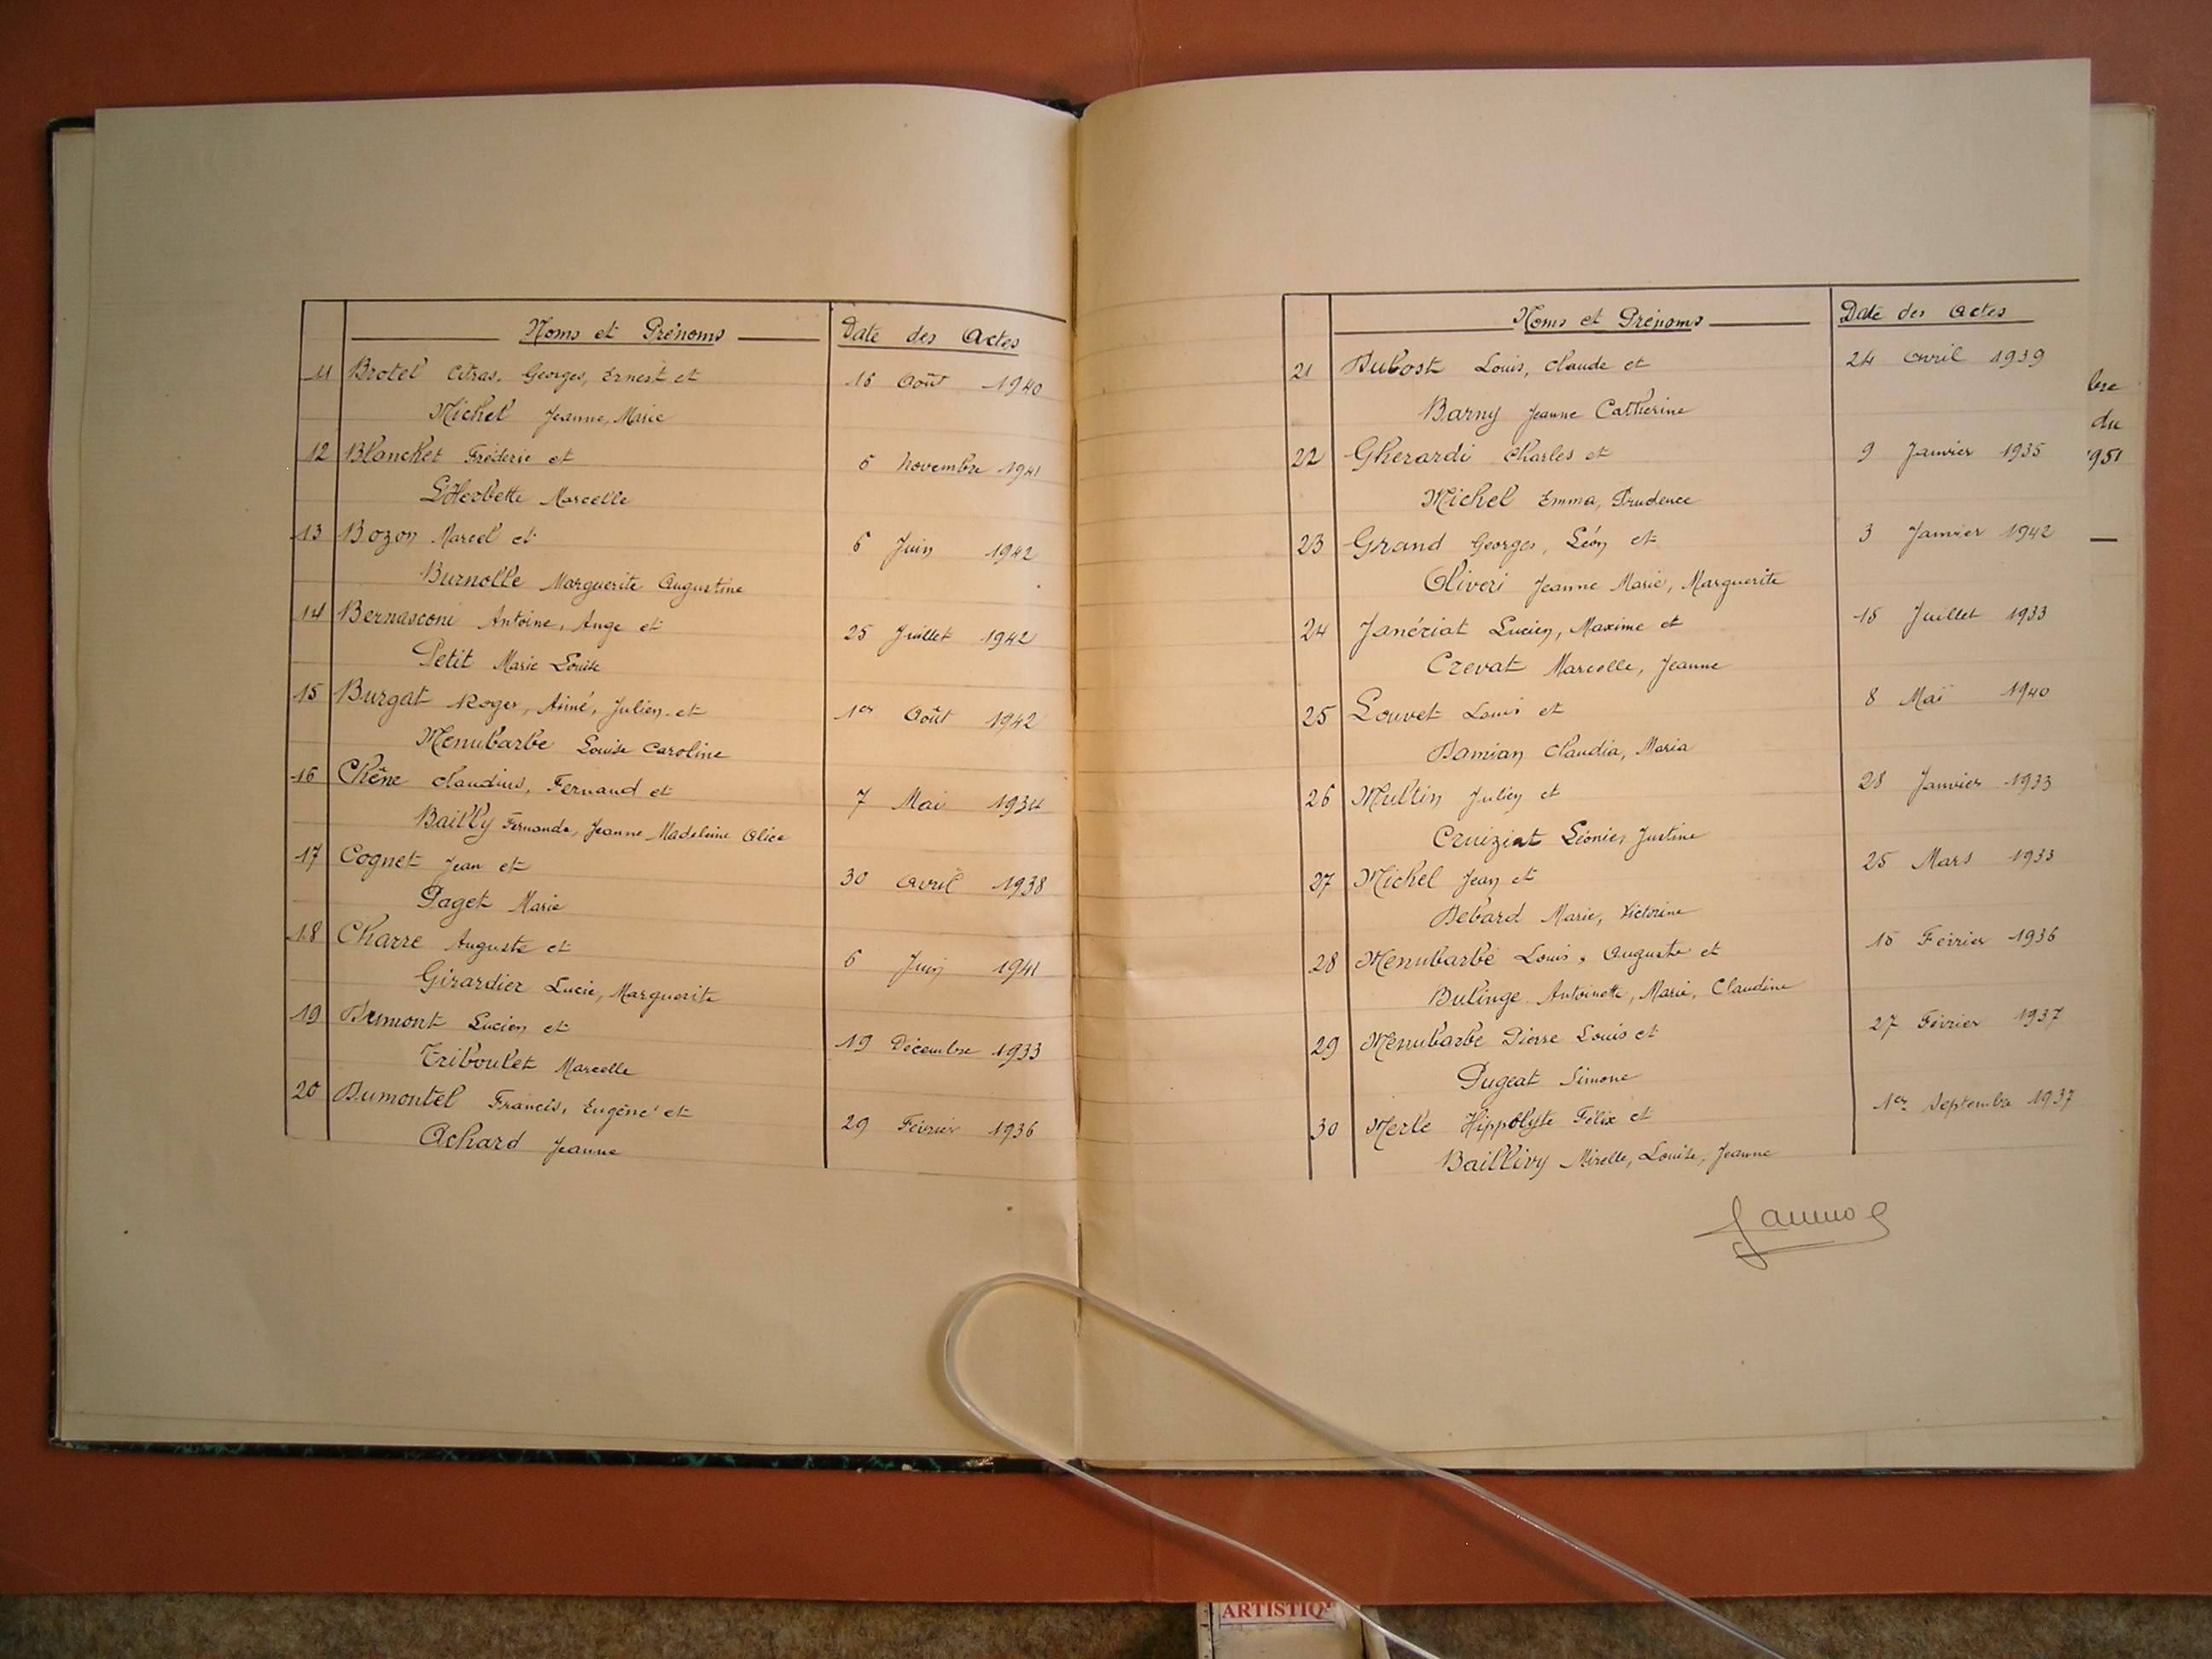 Noms et Prénoms Date des Actes
11 Brotel Citras, Georges, Ernest et 16 Août 1940
Michel Jeanne, Marie
12 Blanchet Fréderic et 6 Novembre 1941
Marcelle
13 Bozon Marcel et 6 Juin 1942
Burnolle Marguerite Augustine
14 Bernasconi Antoine, Ange et 25 Juillet 1942
Petit Marie Louise
15 Burgat Roger, Aimé, Julien et 1er Août 1942
Menubarbe Louise Caroline
16 Chêne Claudius, Fernand et 7 Mai 1934
Bailly Fernande, Jeanne Madeleine Alice
17 Cognet Jean et 30 Avril 1938
Paget Marie
18 Charre Auguste et 6 Juin 1941
Girardier Lucie, Marguerite
19 Dumont Lucien et 19 Décembre 1933
Triboulet Marcelle
20 Dumontel Francis, Eugène et 29 Février 1936
Achard Jeanne
Noms et Prénoms Date des Actes
21 Dubost Louis, Claude et 24 Avril 1939
Barny Jeanne Catherine
22 Gherardi Charles et 9 Janvier 1935
Michel Emma, Prudence
23 Grand Georges, Léon et 3 Janvier 1942
Oliveri Jeanne Marie, Marguerite
24 Janériat Lucien, Maxime et 15 Juillet 1933
Crevat Marcelle, Jeanne
25 Louvet Louis et 8 Mai 1940
Damian Claudia, Maria
26 Multin Julien et 28 Janvier 1933
Cruiziat Léonie, Justine
27 Michel Jean et 25 Mars 1933
Debard Marie, Victorine
28 Menubarbe Louis, Auguste et 15 Février 1936
Bulinge Antoinette, Marie, Claudine
29 Menubarbe Pierre Louis et 27 Février 1937
Pugeat Simone
30 Merle Hippolyte Félix et 1er Septembre 1937
Baillivy Mirelle, Louise, Jeanne
bre
du
951
ARTISTIQ